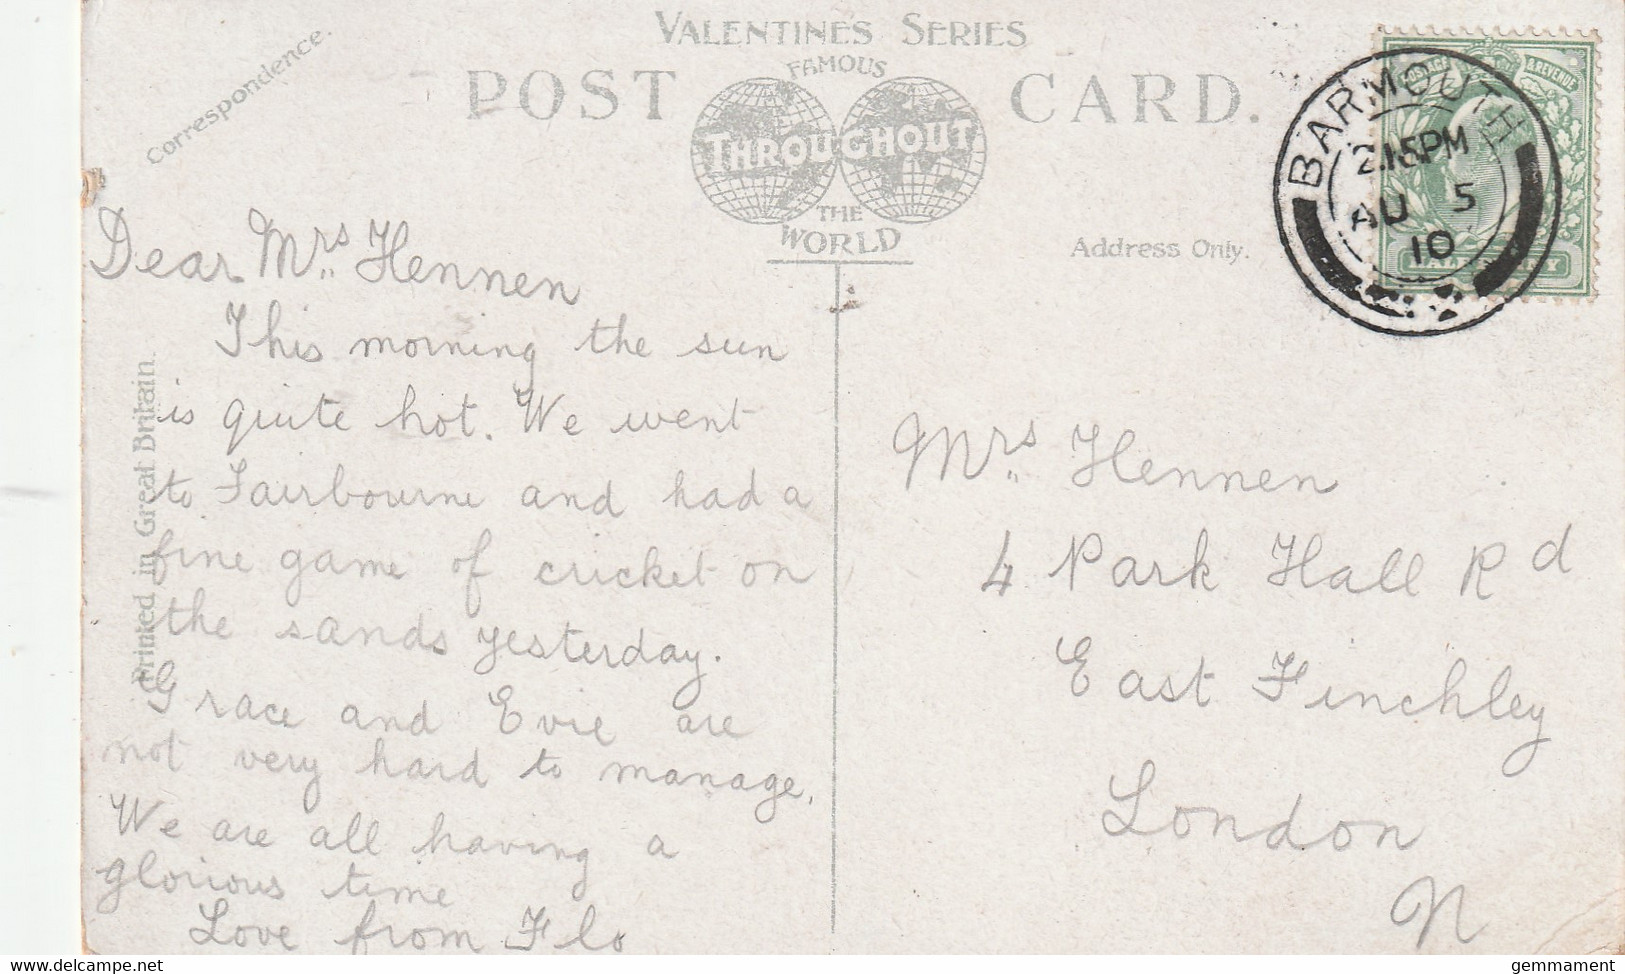 VALENTINES SERIES
FAMOUS
POST CARD.
THROUGHOUT
THE
WORLD
Correspondence.
Address Only.
Printed in Great Britain.
POSTAGE & REVENUE
HALFPENNY
BARMOUTH
2.15PM
AU 5
10
Dear Mrs. Hennen
This morning the sun
is quite hot. We went
to Fairbourne and had a
fine game of cricket on
the sands yesterday.
Grace and Evie are
not very hard to manage.
We are all having a
glorious time
Love from Flo
Mrs. Hennen
4 Park Hall Rd
East Finchley
London
N
www.delcampe.net
gemmament